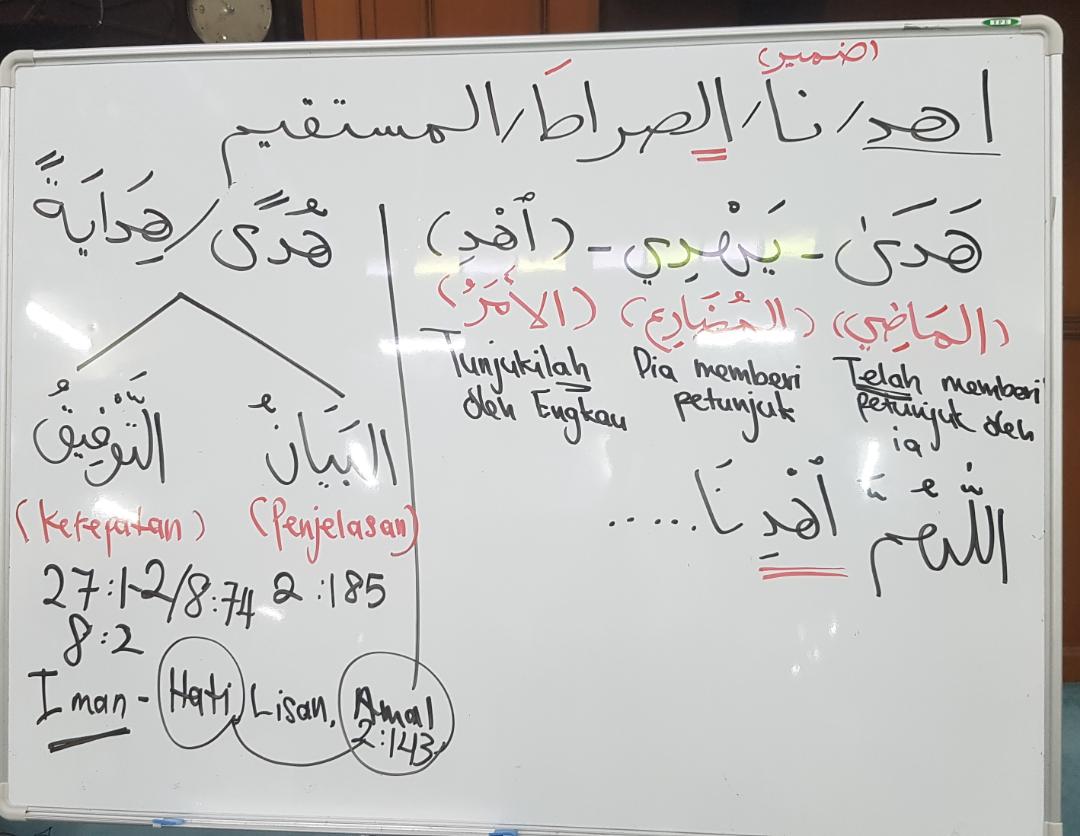 (ضمير)
اهد/نا/الصراطَ/المستقيم
هَدَىٰ - يَهْدِي - (أهْدِ)
(المَاضِي) (المُضَارِع) (الأَمْرُ)
Telah memberi petunjuk oleh ia
Dia memberi petunjuk
Tunjukilah oleh Engkau
اللّهُمَّ أهْدِنَا ......
هُدًى/هِدَايَةً
البَيَانُ
(Penjelasan)
2:185
التَّوْفِيقُ
27:1-2/8:74
8:2
Iman - Hati, Lisan, Amal
2:143
TPE